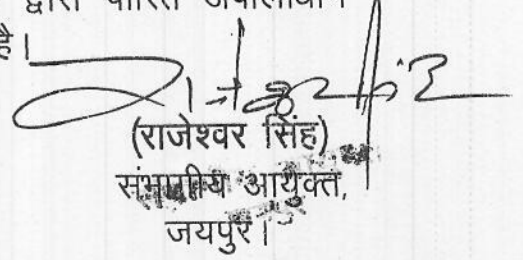 द्वारा पारित अपीलाधीन
है।
(राजेश्वर सिंह)
संभागीय आयुक्त,
जयपुर।